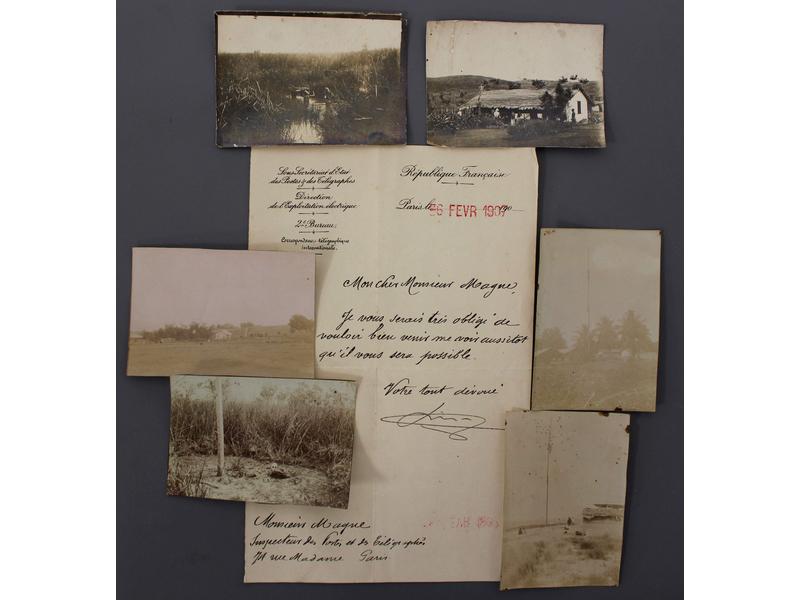 Sous Secrétariat d'Etat
des Postes & des Télégraphes
Direction
de l'Exploitation électrique
2e Bureau
Correspondance télégraphique
internationale
République Française
Paris, le 26 FEVR 1907 190
Mon cher Monsieur Magne,
Je vous serais très obligé de
vouloir bien venir me voir aussitôt
qu'il vous sera possible.
Votre tout dévoué
Monsieur Magne
Inspecteur des Postes et des Télégraphes
71 rue Madame Paris